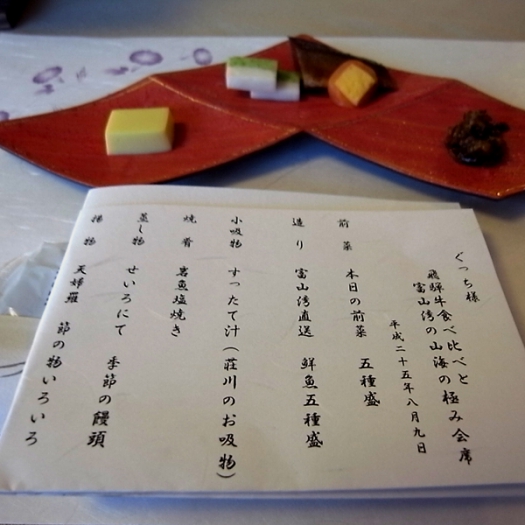 ぐっち様
飛騨牛食べ比べと
富山湾の山海の極み会席
平成二十五年八月九日
前菜 本日の前菜 五種盛
造り 富山湾直送 鮮魚五種盛
小吸物 すったて汁(荘川のお吸物)
焼肴 岩魚塩焼き
蒸し物 せいろにて 季節の饅頭
揚物 天婦羅 節の物いろいろ